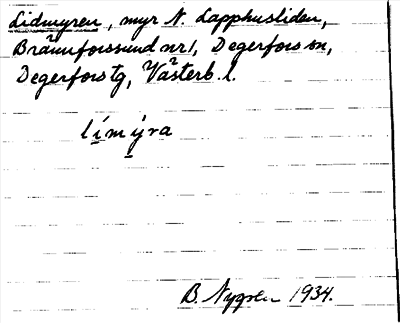 Lidmyren, myr N. Lapphusliden,
Brännforssund nr 1, Degerfors sn,
Degerfors tg, Västerb. l.
límýra
B. Nygren 1934.